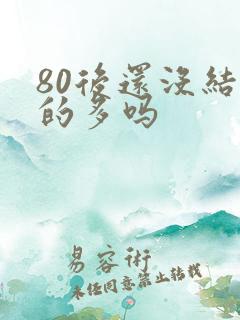 80後還沒結
的多吗
易容術
未经同意禁止转载